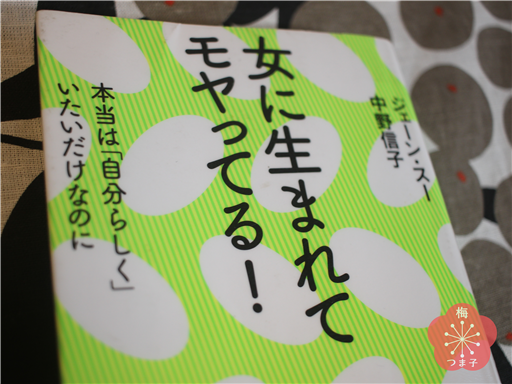 女に生まれて
モヤってる！
本当は「自分らしく」
いたいだけなのに
ジェーン・スー
中野信子
梅
つま子